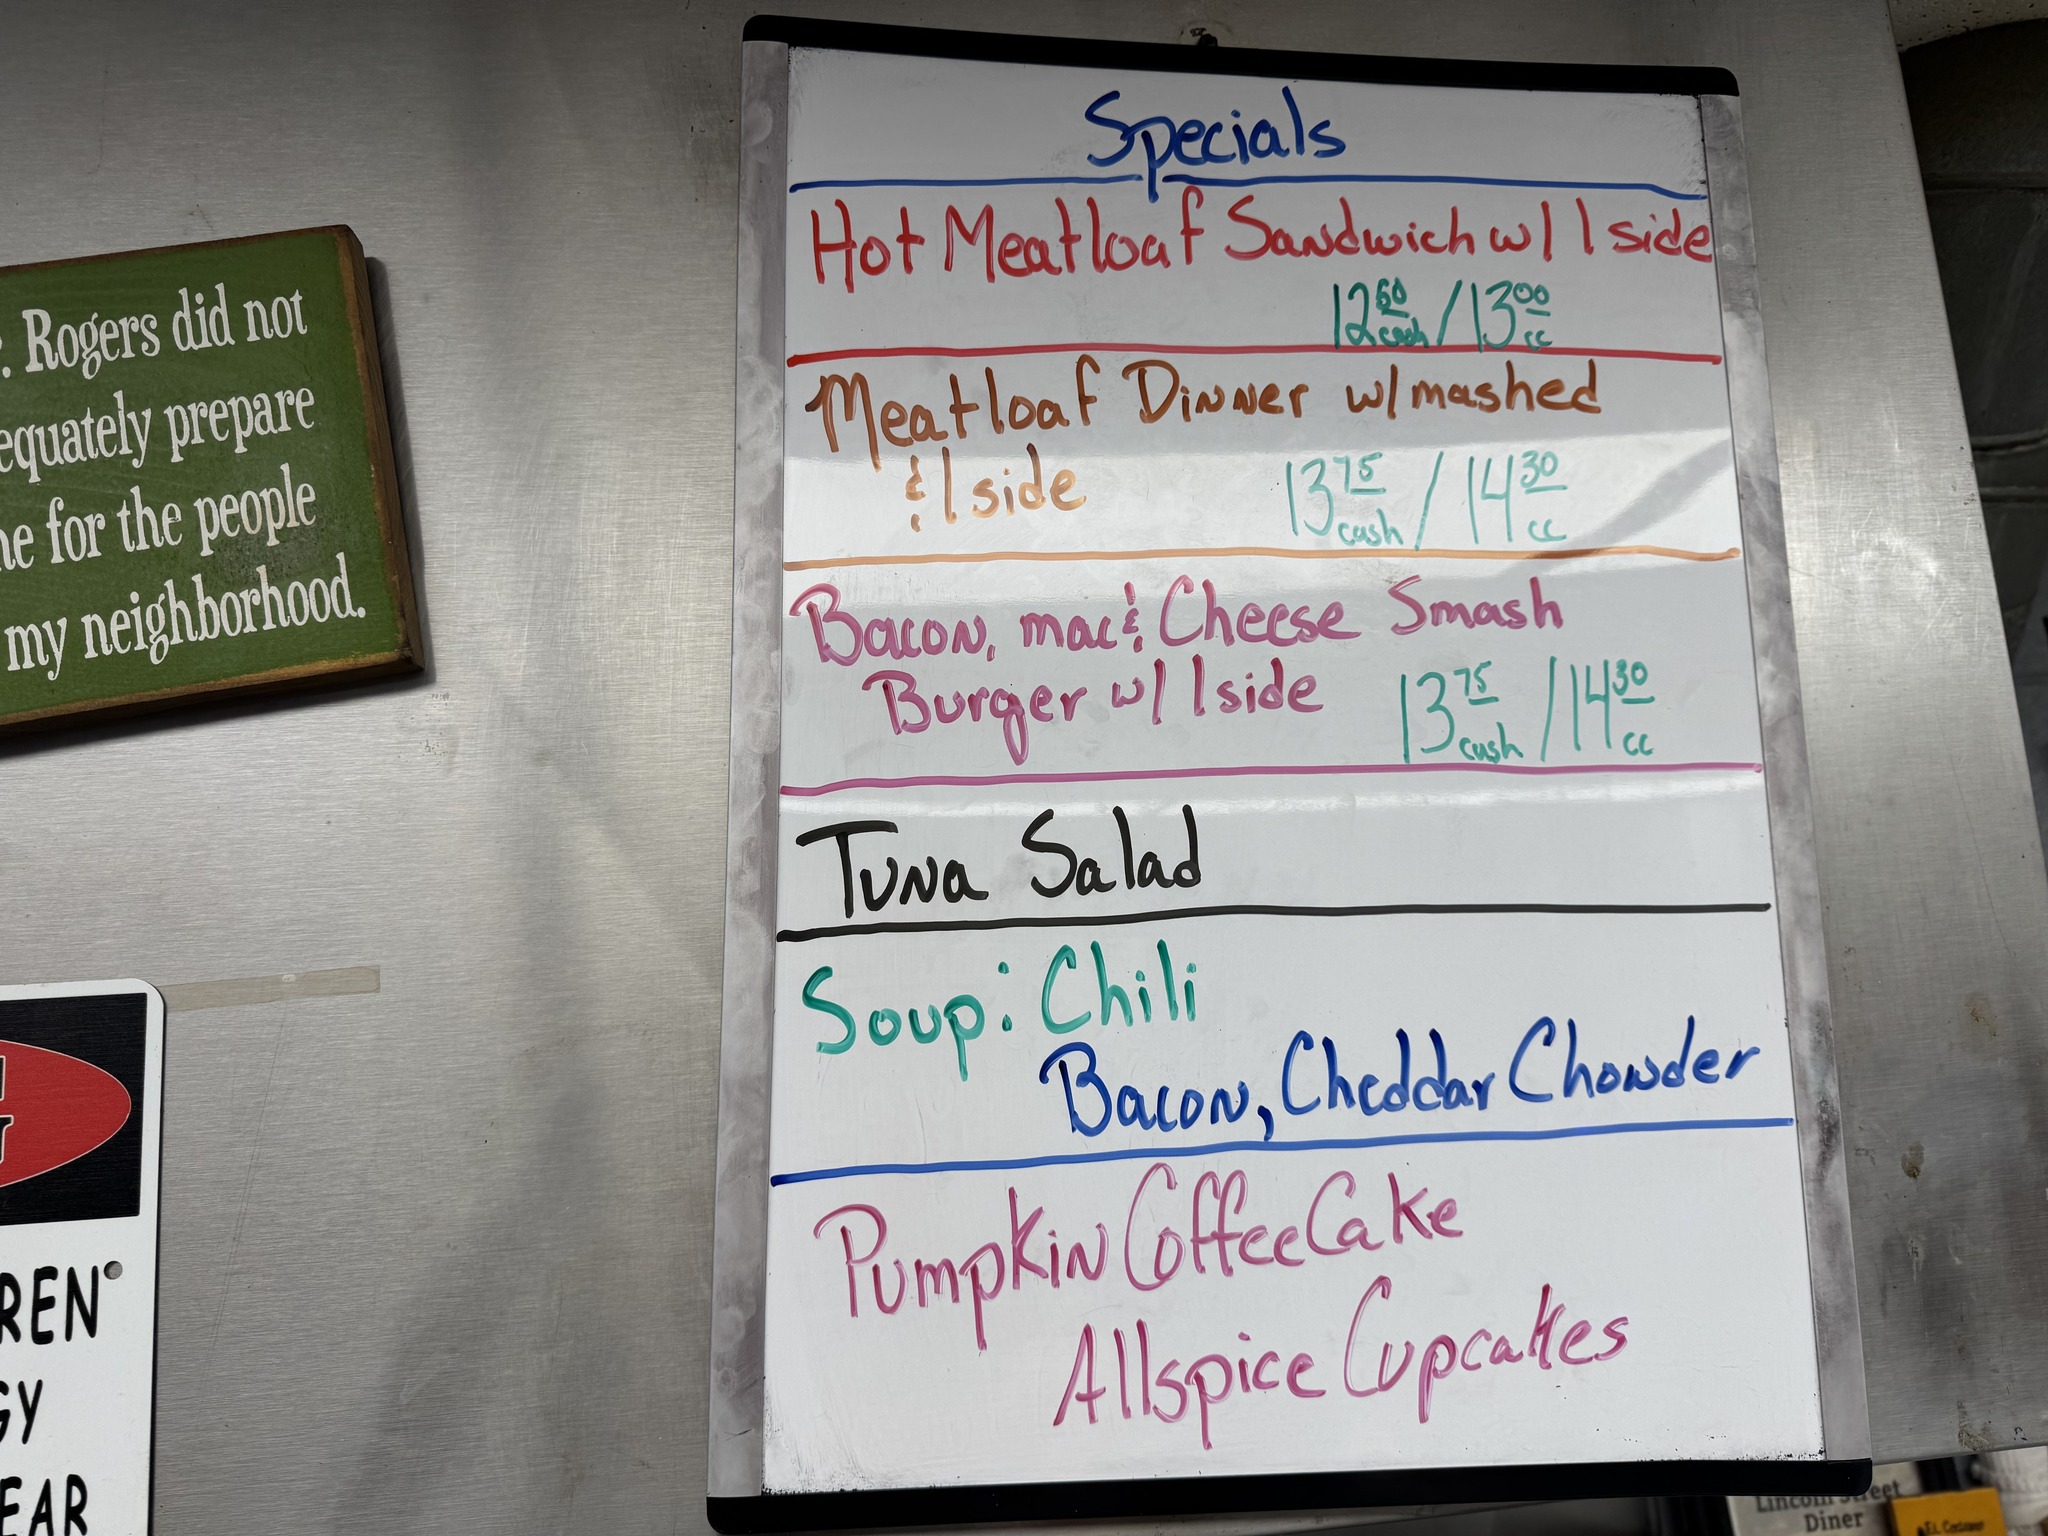 Specials
Hot Meatloaf Sandwich w/ 1 side
12 50 cash / 13 00 cc
Meatloaf Dinner w/ mashed
& 1 side 13 75 cash / 14 30 cc
Bacon, mac & Cheese Smash
Burger w/ 1 side 13 75 cash / 14 30 cc
Tuna Salad
Soup: Chili
Bacon, Cheddar Chowder
Pumpkin Coffee Cake
Allspice Cupcakes
. Rogers did not
equately prepare
e for the people
my neighborhood.
REN
GY
EAR
Lincoln Street
Diner